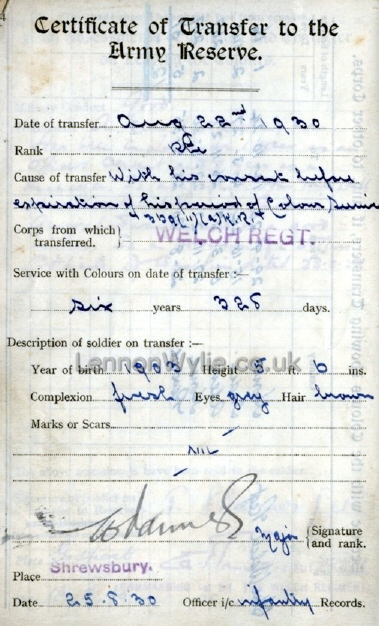 Certificate of Transfer to the
Army Reserve.
Date of transfer Aug 22nd 1930
Rank Pte
Cause of transfer With his consent before
expiration of his period of Colour Service
Corps from which transferred. WELCH REGT.
Service with Colours on date of transfer :—
six years 325 days.
Description of soldier on transfer :—
LennonWylie.co.uk
Year of birth 1903 Height 5 ft. 6 ins.
Complexion fresh Eyes grey Hair brown
Marks or Scars
Nil
Major Signature and rank.
Place Shrewsbury.
Date 25.8.30 Officer i/c infantry Records.